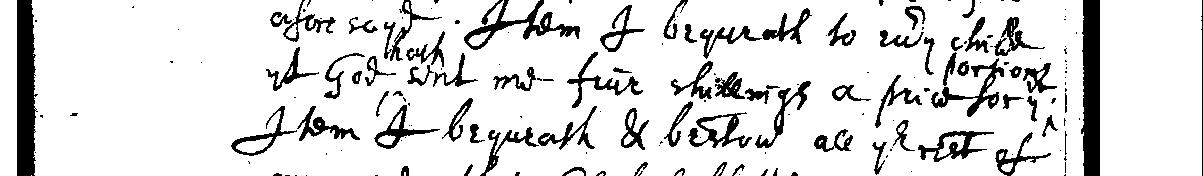 afore sayd. Item I bequeath to evy childe
yt God hath sent me four shillings a piece for yr portions.
Item I bequeath & bestow all ye rest of